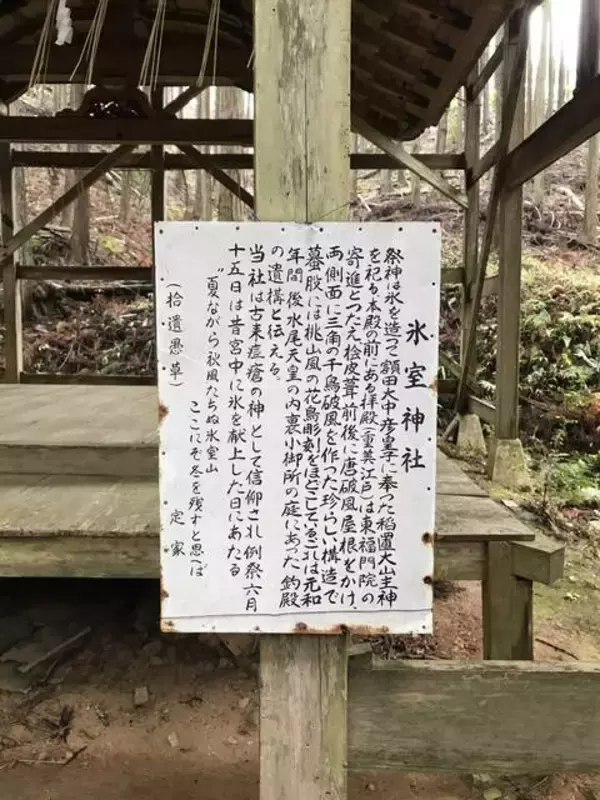 氷室神社
祭神は氷を造って額田大中彦皇子に奉った稲置大山主神
を祀る本殿の前にある拝殿(重美江戸)は東福門院の
寄進とつたえ桧皮葺、前後に唐破風屋根をかけ、
両側面に三角の千鳥破風を作った珍らしい構造で
蟇股には桃山風の花鳥彫刻をほどこして、これは元和
年間後水尾天皇の内裏小御所の庭にあった釣殿
の遺構と伝える。
当社は古来痘瘡の神として信仰され例祭六月
十五日は昔宮中に氷を献上した日にあたる
〝夏ながら秋風たちぬ氷室山
ここにぞ冬を残すと思へば
定家
(拾遺愚草)